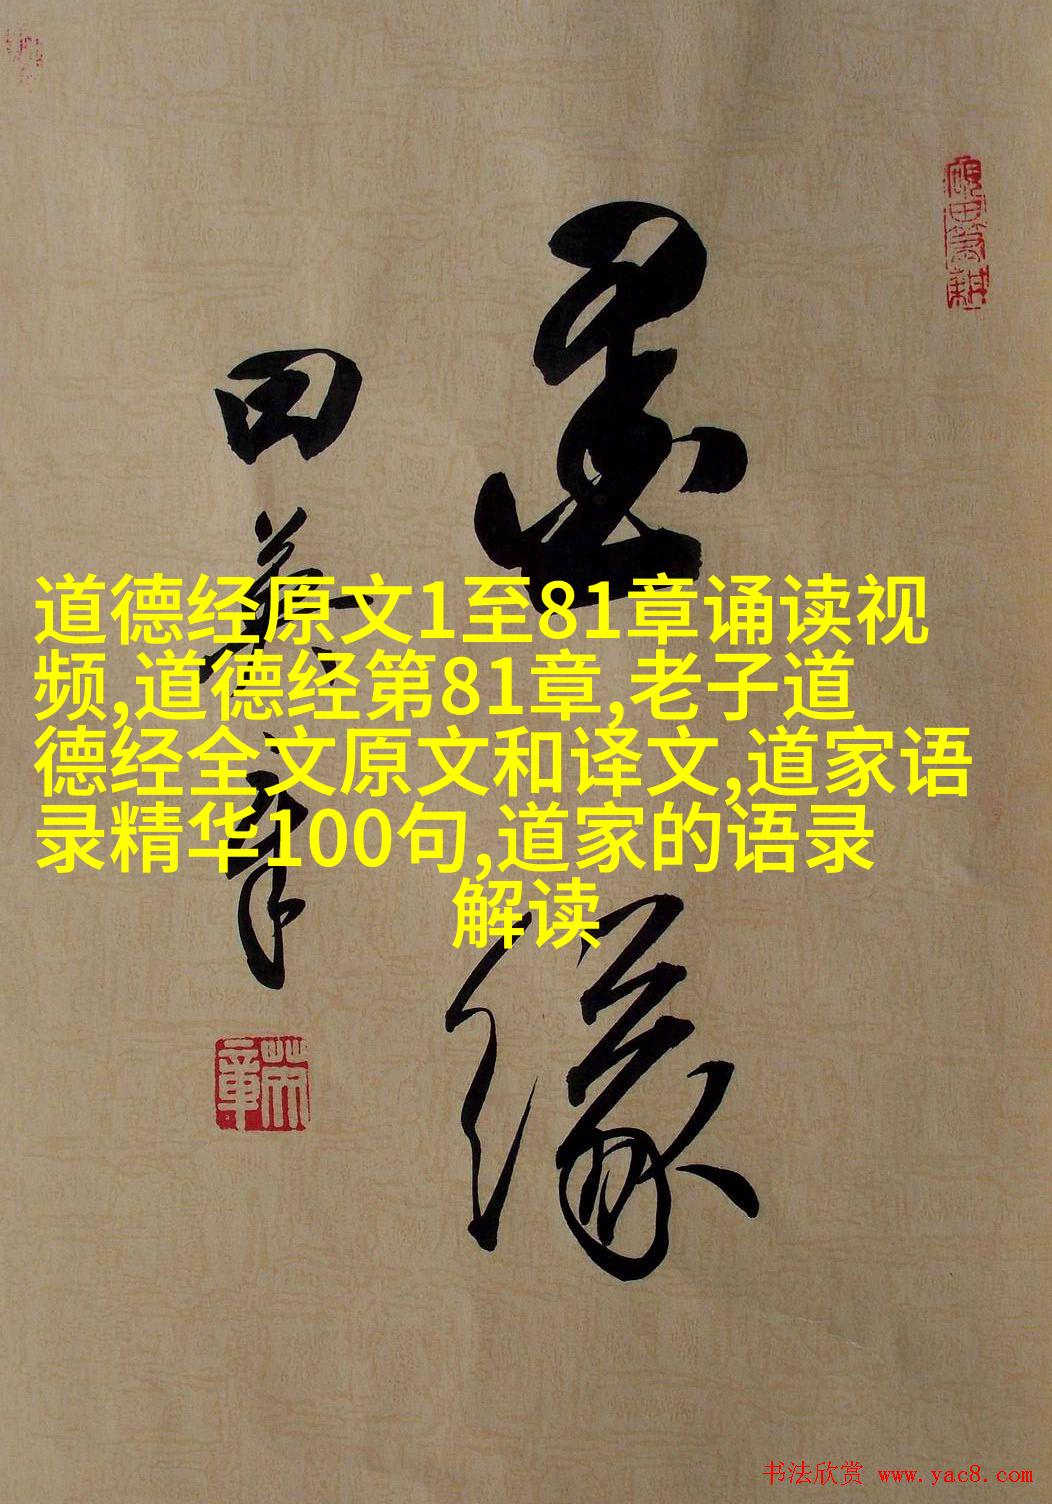 墨缘
田英章
道德经原文1至81章诵读视
频,道德经第81章,老子道
德经全文原文和译文,道家语
录精华100句,道家的语录
解读
砚田笔耕
英章
书法欣赏 www.yac8.com